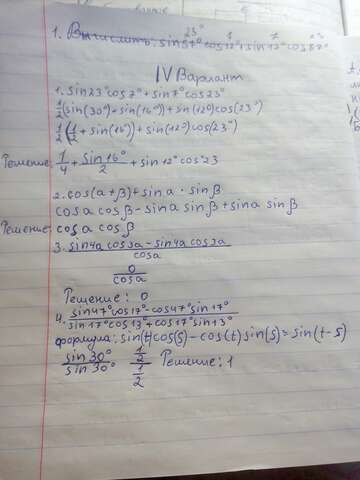 23° 1 7 23
1. Вычислить: sin57°cos12°+sin12°cos57°
IV Вариант
1. sin23°cos7°+sin7°cos23°
1/2(sin(30°)+sin(16°))+sin(12°)cos(23°)
1/2(1/2+sin(16°))+sin(12°)cos(23°)
Решение: 1/4+sin16°/2+sin12°cos23
2. cos(a+β)+sina·sinβ
cosa cosβ-sina sinβ+sina sinβ
Решение: cosa cosβ
3. sin4a cos3a-sin4a cos3a/cosa
0/cosa
Решение: 0
4. sin47°cos17°-cos47°sin17°/sin17°cos13°+cos17°sin13°
формула: sin(t)cos(s)-cos(t)sin(s)=sin(t-s)
sin30°/sin30° 1/2/1/2 Решение: 1